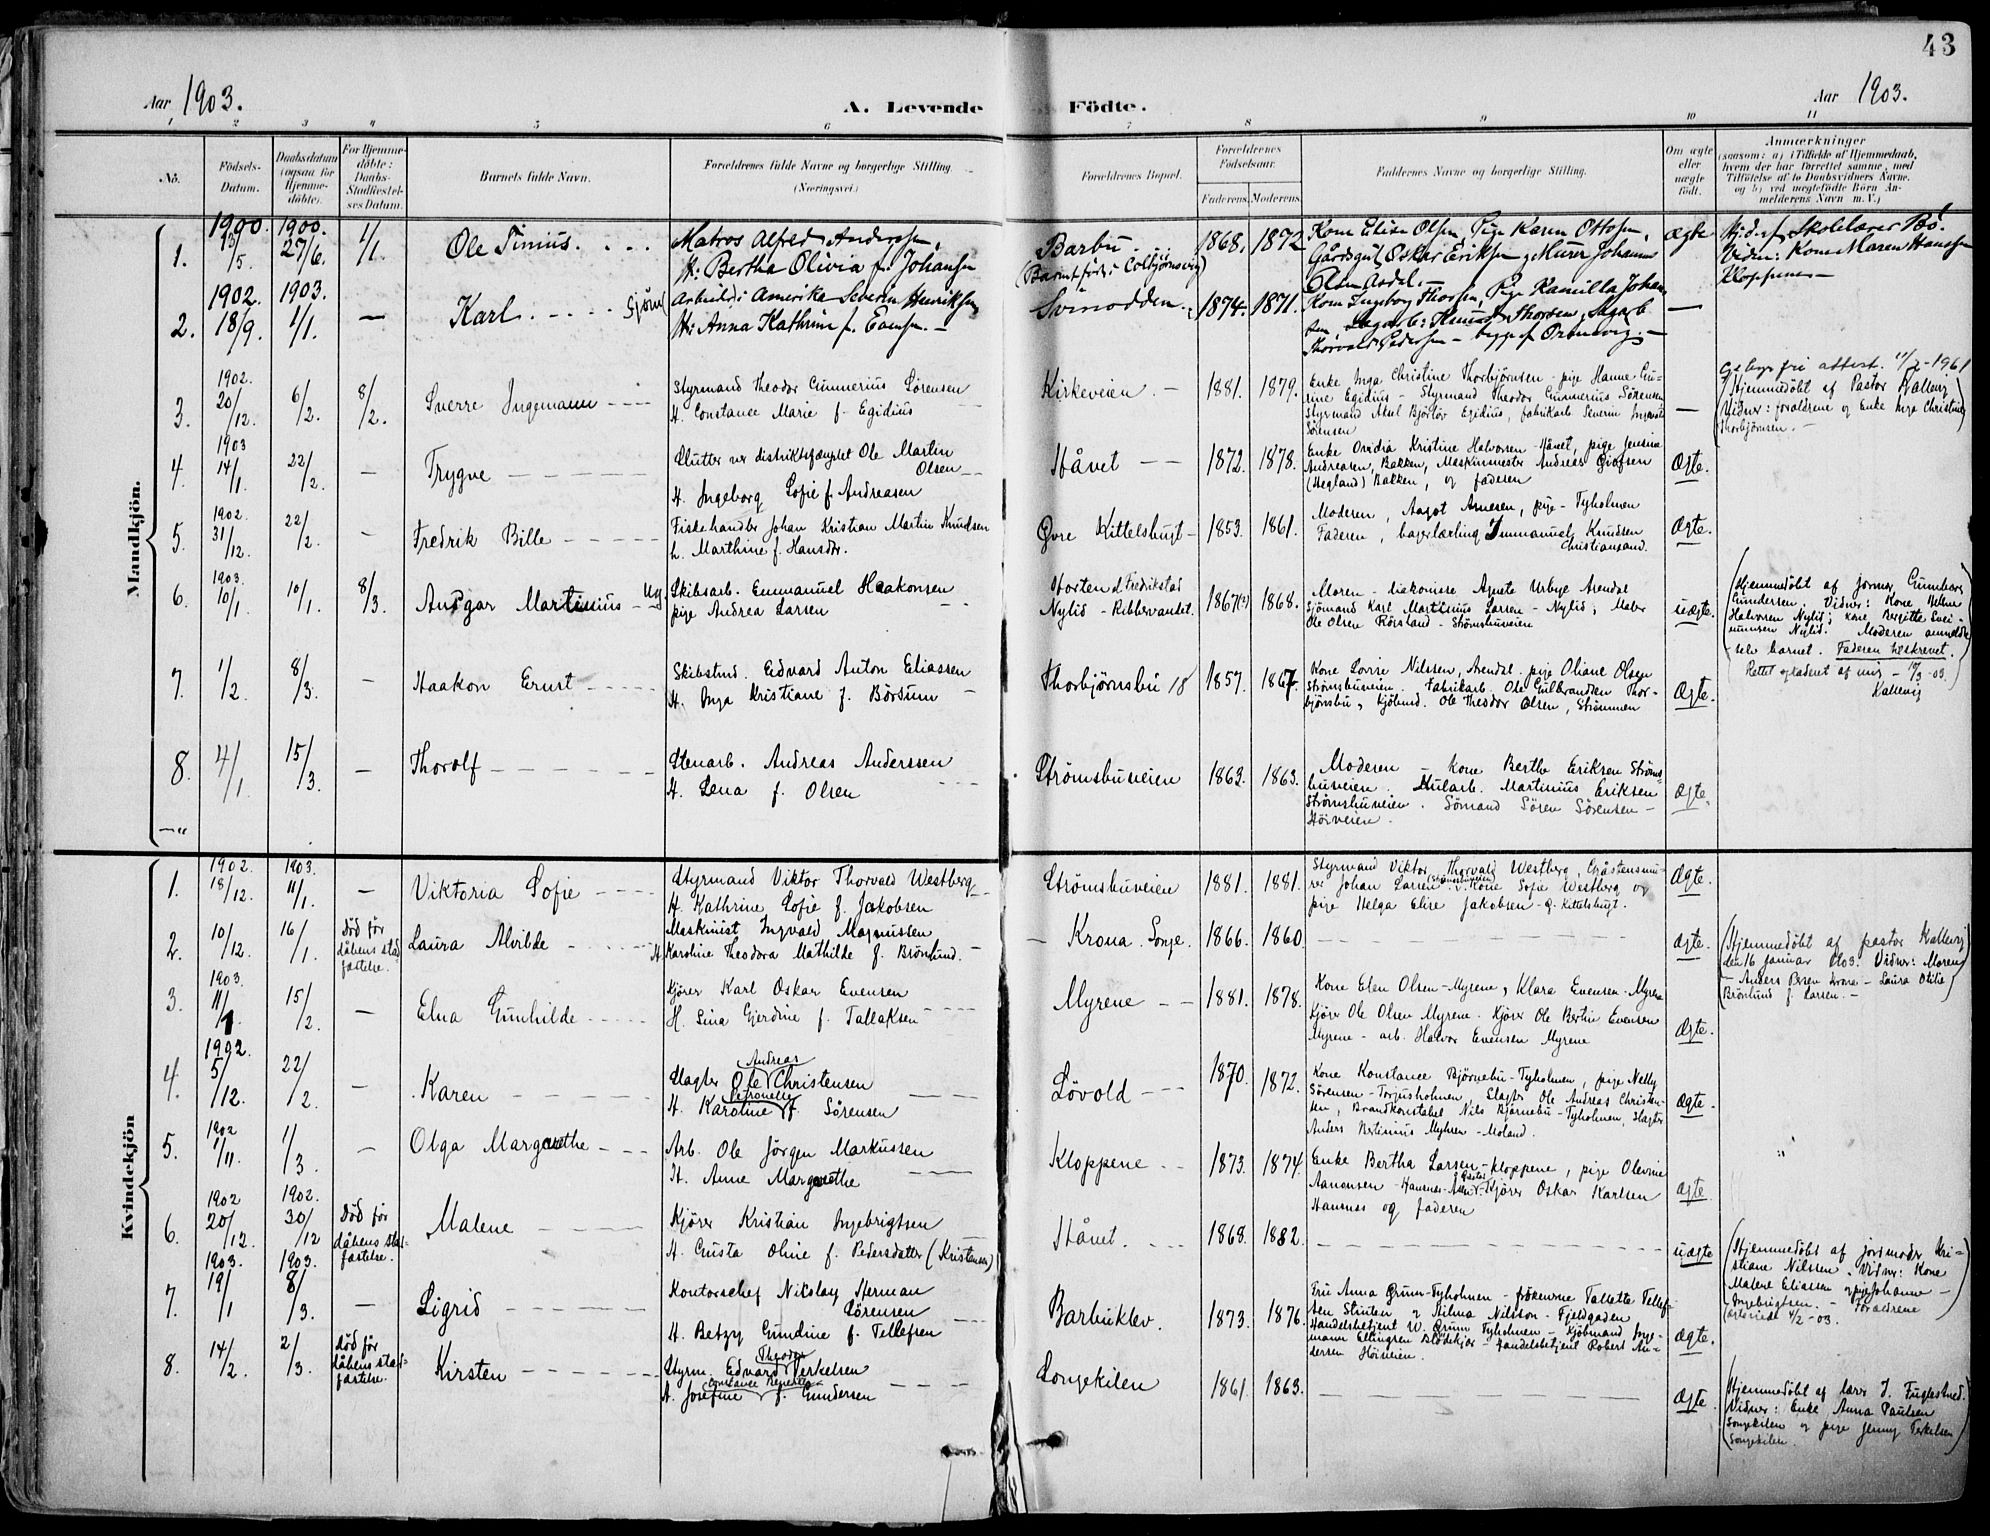 43
Aar 1903.
A. Levende Födte.
Aar 1903.
1 2 3 4 5 6 7 8 9 10 11
No.
Födsels-Datum.
Daabsdatum (ogsaa for Hjemme-döbte).
For Hjemme-döbte: Daabs-Stadfæstel-ses Datum.
Barnets fulde Navn.
Forældrenes fulde Navne og borgerlige Stilling.
(Næringsvei.)
Forældrenes Bopæl.
Forældrenes Födselsaar.
Faderens. Moderens.
Faddernes Navne og borgerlige Stilling.
Om ægte eller uægte födt.
Anmærkninger
(saasom: a) i Tilfælde af Hjemmedaab,
hvem der har forrettet samme, med
Tilföielse af to Daabsvidners Navne,
og b) ved uægtefödte Börn An-
melderens Navn m. V.)
Mandkjön.
1. 1900. 13/5. 1900. 27/6. 1/1. Ole Tinius.
Matros Alfred Anderssen,
H: Bertha Olivia f. Johansen
Barbu. 1868. 1872
Kone Elise Olsen, Pige Karen Ottosen,
Gårdsgut Oskar Eriksen, Murer Johannes
Olsen Asdal.
Ægte
Hj.d. af Skolelærer Bö.
Vidner: Kone Maren Hansen
Kloppene
2. 1902. 18/9. 1903. 1/1. — Karl.
Arbeider i Amerika Severin Henriksen,
H: Anna Kathrine f. Evensen.
Svinodden. 1874. 1871.
Kone Ingeborg Thorsen, Pige Kamilla Johan-
sen, Sagarb: Knud Thorsen, Sagarb.
Thorvald Pedersen — begge af
—
3. 1902. 20/12. 6/2. 8/2. Sverre Ingemann
Styrmand Theodor Gunnerius Sörensen
H. Constance Marie f. Egidius
Kirkeveien 1881. 1879.
Enke Inga Christine Thorbjörnsen - pige Hanne Gu-
rine Egidius - Styrmand Theodor Gunnerius Sörensen
Styrmand Aksel Egidius, fabrikarb Severin
Sörensen
—
Gebyrfri attest. 11/7-1961
Hjemmedöbt af Pastor Kallevig
Vidner: forældrene og Enke Inga Christine
Thorbjörnsen. —
4. 1903 14/1. 22/2. — Trygve
Slutter ved distriktsfængslet Ole Martin
Olsen
H. Ingeborg Sofie f. Andreasen
Håvet 1872. 1878.
Enke Ovidia Kristine Halvorsen - Håvet, pige Jensine
Andreasen, Bakken, Maskinmester Andreas
(Hegland) Bakken, og faderen
Ægte.
5. 1902. 31/12. 22/2. — Fredrik Bille
Fiskehandler Johan Kristian Martin Knudsen
h. Marthine f. Hansdtr.
Øvre Kittelsbugt 1853. 1861.
Moderen, Aagot Arnesen, pige - Tyholmen
Faderen, bagerlærling Immanuel Knudsen
Christianssand.
Ægte.
6. 1903. 10/1. 10/1. 8/3. Ansgar Martinius Ug.
Skibsarb. Emmanuel Haakonsen
pige Andrea Larsen
Horten d. Fredrikstad
Nylid - Ribbervandet. 1867(?) 1868.
Moren - diakonisse Agnete Urbye Arendal
Sjömand Karl Martinius Larsen - Nylid, Maler
Ole Olsen Rorstand - Strömsbuveien
uægte.
Hjemmedöbt af jormor Gunhild
Gundersen. Vidner: Kone Helene
Halvorsen Nylid; Kone Bergitte
Nylid. Moderen anmeldte
selv barnet. Faderen tilskrevet.
Rettet og raderet af mig - 17/3-03.
Kallevig
7. 1/2. 8/3. — Haakon Ernst
Skibstmd. Edvard Anton Eliassen
H. Inga Kristiane f. Börsum
Thorbjørnsbu 18 1857. 1867.
Kone Lovise Nilssen, Arendal. pige Oliane Olsen
Strömsbuveien. Fabrikarb. Ole Gulbrandsen Thor-
bjönsbu, Sjömd. Ole Theodor Olsen, Strömmen
Ægte.
8. 4/1. 15/3. — Thorolf
Stenarb. Andreas Anderssen
H. Lena f. Olsen
Strømsbuveien 1863. 1863.
Moderen - kone Berthe Eriksen Ströms-
buveien. Hularb. Martinius Eriksen
Strömsbuveien. Sömand Sören Sörensen -
Höiveien.
Ægte.
Kvindekjön
1. 1902. 18/12. 1903. 11/1. — Viktoria Sofie
Styrmand Viktor Thorvald Westberg
H. Kathrine Sofie f. Jakobsen
Strömsbuveien 1881. 1881.
Styrmand Viktor Thorvald Westberg, Gråstensmu-
rer Johan Larsen (Strömsbuveien). Kone Sofie Westberg og
pige Helga Elise Jakobsen - Ö. Kittelsbugt.
Ægte.
2. 10/12. 16/1. död för dåbens stad-fæstelse. Laura Alvilde
Maskinist Ingvald Magnussen
H. Karoline Theodora Mathilde f. Brönlund.
Krona. Songe. 1866. 1860
Ægte.
Hjemmedöbt af pastor Kallevig
den 16 januar 1903. Vidner: Moren
- Anders Krona - Laura Otilie
Brönlund f. Larsen. —
3. 1903. 11/1. 15/2. — Elna Gunhilde
Kjörer Karl Oskar Evensen
H. Lina Gjerdine f. Tallaksen
Myrene 1881. 1878.
Kone Elen Olsen - Myrene, Klara Evensen - Myrene
Kjörer Ole Olsen Myrene. Kjörer Ole Bertin Evensen
Myrene - arb. Halvor Evensen Myrene
Ægte.
4. 1902. 5/12. 22/2. — Karen
Slagter Ole Andreas Christensen
H. Karoline Petronelle f. Sörensen
Lövold 1870. 1872.
Kone Konstance Björnebu - Tyholmen, pige Nelly
Sörensen - Torjusholmen, Slagter Ole Andreas Christen-
sen, Brandkonstabel Nils Björnebu - Tyholmen, slagter
Anders Bertinius Myhren - Moland.
Ægte.
5. 1902 1/11. 1/3. — Olga Margrethe
Arb. Ole Jörgen Markussen
H. Anne Margrethe
Kloppene 1873. 1874
Enke Bertha Larsen - Kloppene, pige Olevine
Aanonsen - Kjörer Oskar Karlsen
og faderen
Ægte
6. 1902 20/12. 1902. 30/12 död för dåbens stad-fæstelse. Malene
Kjörer Kristian Ingebrigtsen
H. Gusta Oline f. Pedersdatter (Kristensen)
Håvet. 1868. 1882.
uægte
Hjemmedöbt af jordmoder Kri-
stiane Nilssen. Vidner: Kone
Malene Eliassen og pige Johanne
Ingebrigtsen. - Forældrene
7. 1903. 19/1 1903. 8/3. — Sigrid
Kontorchef Nikolay Herman
Sörensen
H. Betzy Gundine f. Tellefsen
Barbuklev. 1873. 1876.
Fru Anna Grum - Tyholmen - frökenerne Tallette Tellef-
sen Stinten og Hilma Nilsson - Fjeldgaden
Handelsbetjent W. Grum Tyholmen - Kjöbmand Inge-
mann Ellingsen Blödekjær - Handelsbetjent Robert An-
dersen Höiveien.
Ægte.
8. 14/2. 2/3. död för dåbens stad-fæstelse. Kirsten
Styrm. Edvard Theodor Terkelsen
H. Josefine Constance f. Gundersen
Songekilen 1861. 1863.
Ægte.
Hjemmedöbt af lærer J. Fuglestved.
Vidner: Enke Anna Paulsen
Songekilen og pige Jenny Terkelsen
Songekilen.